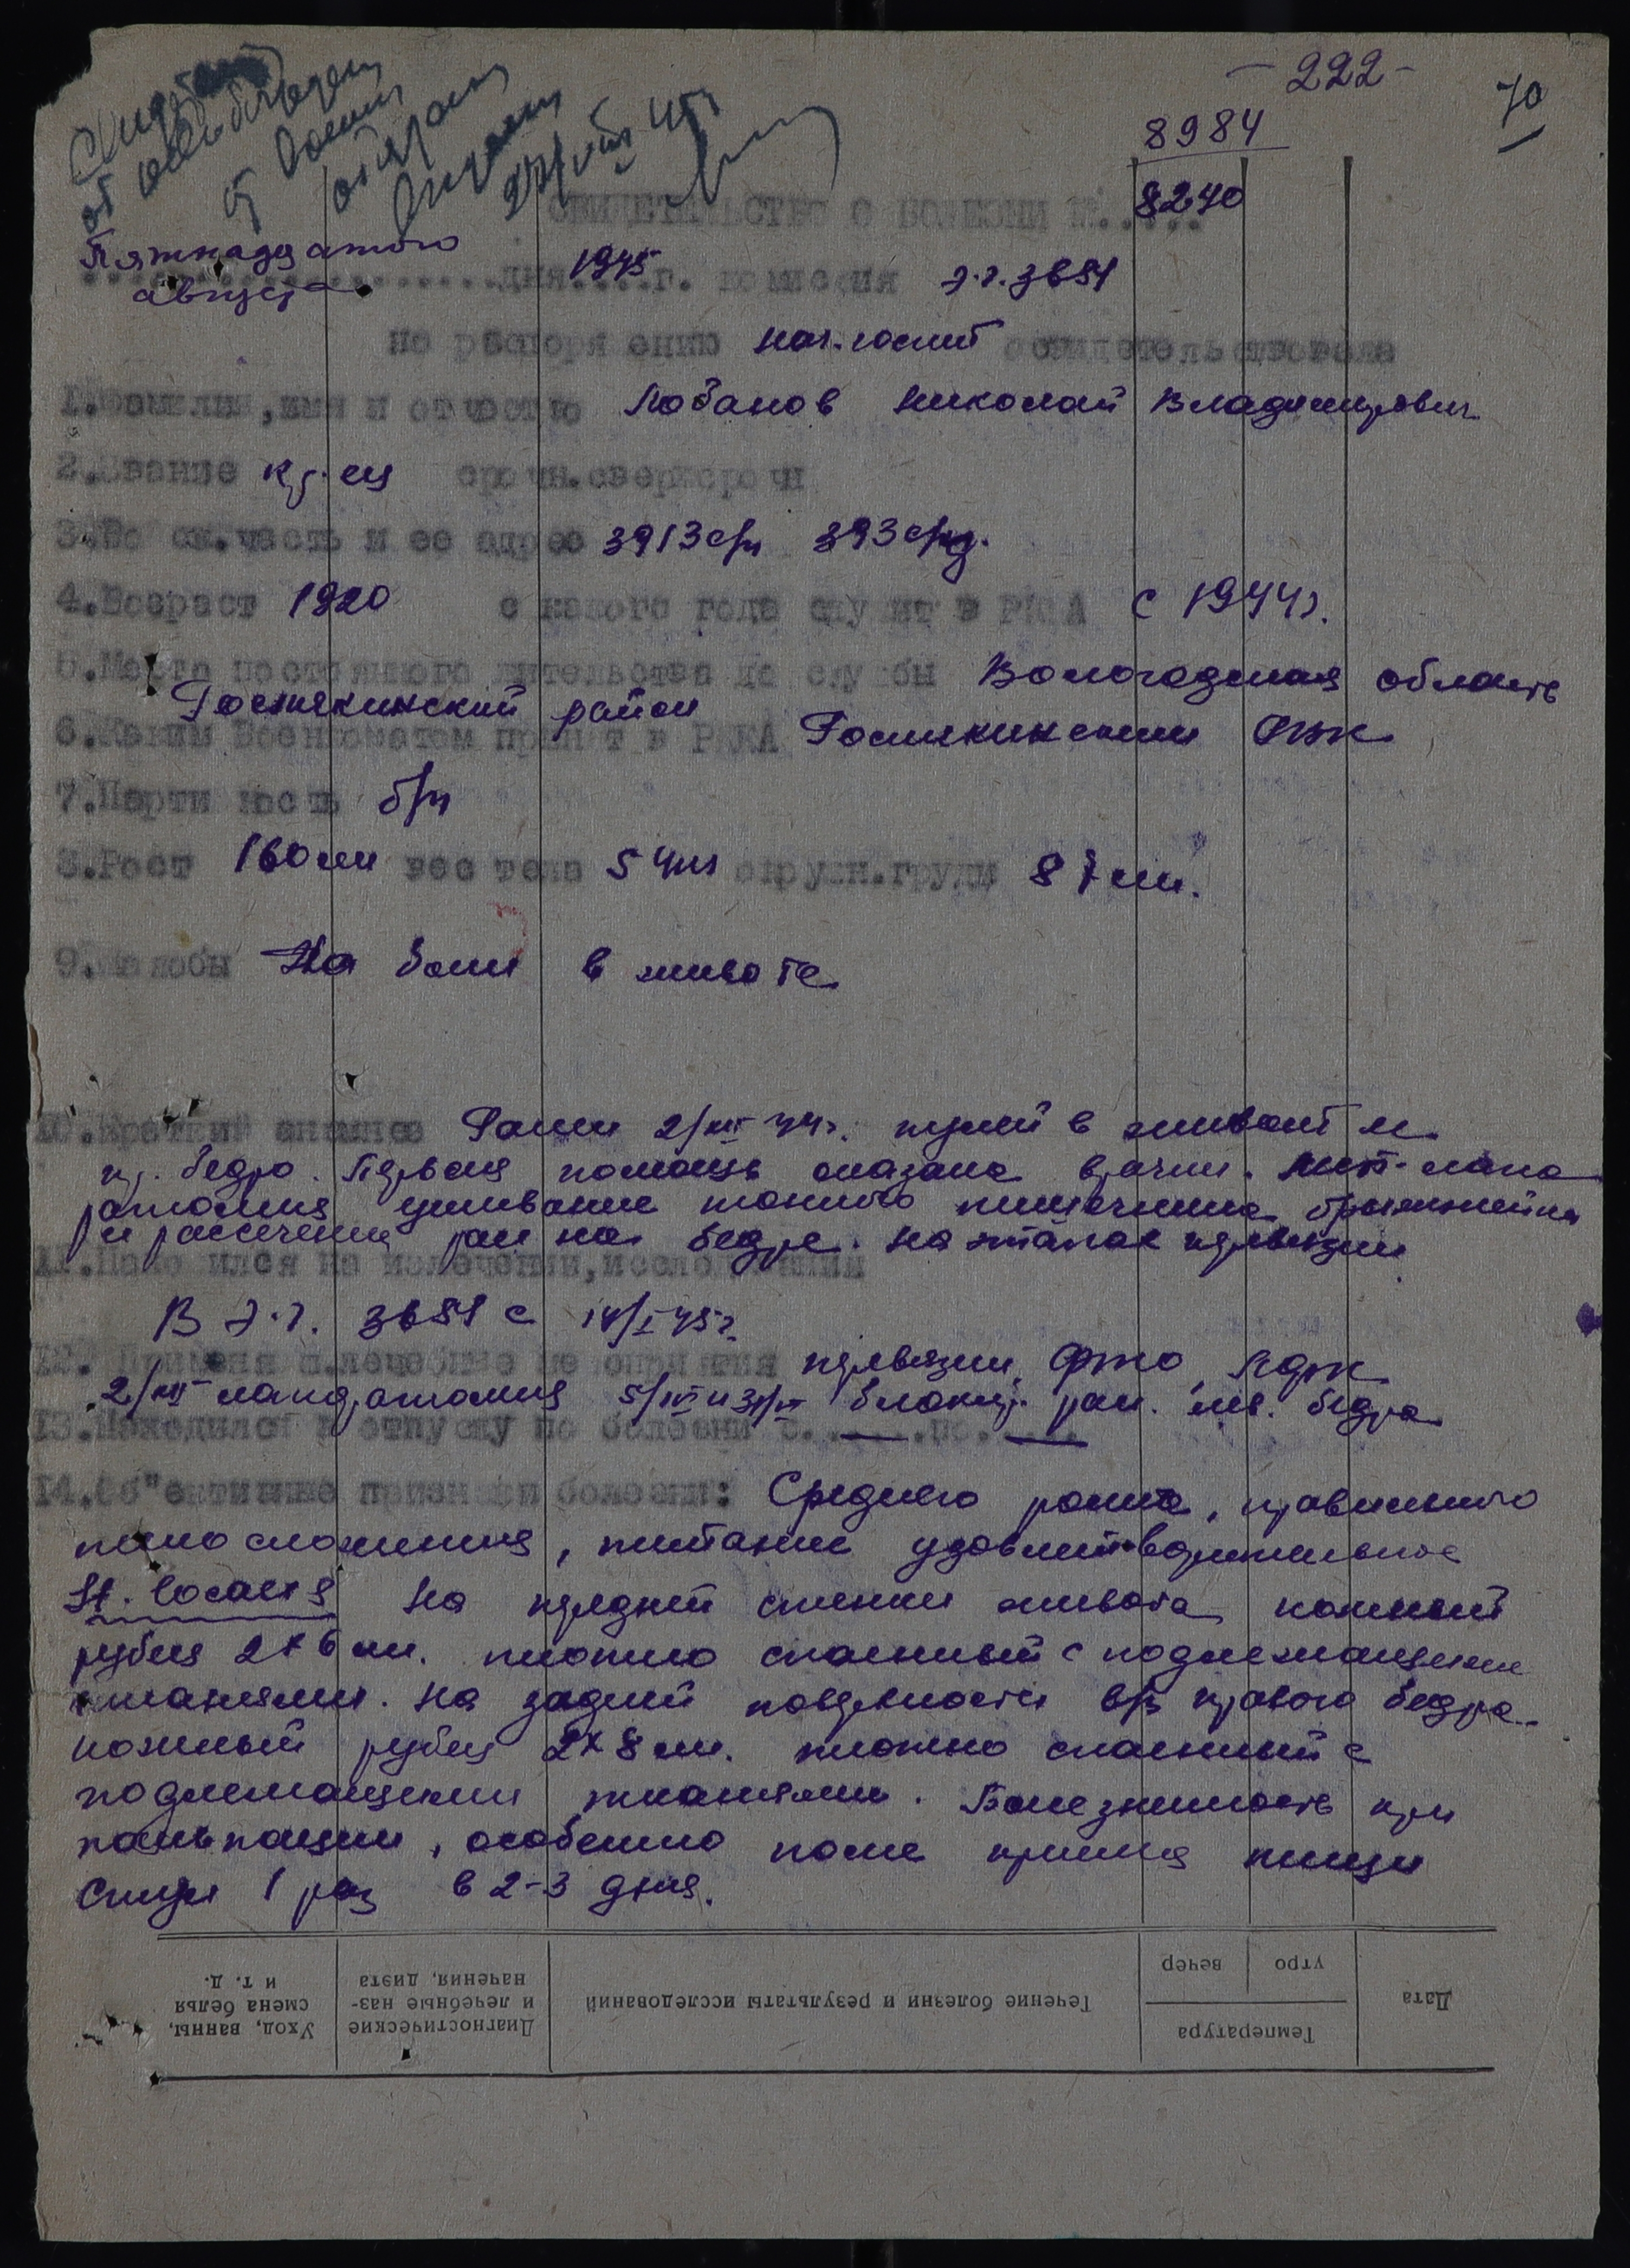 - 222 -
70
8984
8240
СВИДЕТЕЛЬСТВО О БОЛЕЗНИ №.....
Пятнадцатого
августа дня 1945 г. комиссия э.г. 3651
по распоряжению нач. госпит освидетельствовала
1. Фамилия, имя и отчество Лобанов Николай Владимирович
2. Звание кр-ец срочн. сверхсрочн
3. Во ск. часть и ее адрес 3913 сп 393 сд.
4. Возраст 1920 с какого года служит в РККА с 1944 г.
5. Место постоянного жительства до службы Вологодская область
район
6. Каким Военкоматом принят в РККА РВК
7. Партийность б/п
8. Рост 160 см вес тела 54 кг окружн. груди 87 см.
9. Жалобы На боли в животе
10. Краткий анамнез Ранен 2/VIII 44 г. пулей в живот и
пр. бедро. Первая помощь оказана врачом. лапа
ратомия ушивание тонкого кишечника, брыжейки
и рассечение ран на бедре. На этапах перевязки
11. Находился на излечении, исследовании
В э.г. 3651 с 14/I 45 г.
12. Применялись лечебные мероприятия перевязки, ФТО, ЛФК
2/VIII лапаратомия 5/IV и блокир. ран. бедра
13. Находился в отпуску по болезни с.......по......
14. Об"ективные признаки болезни: Среднего роста, правильного
телосложения, питание удовлетворительное
St. localis На передней стенке живота кожный
рубец 2х6 см. плотно спаянный с подлежащими
тканями. На задней поверхности в/з правого бедра
кожный рубец 2х8 см. плотно спаянный с
подлежащими тканями. Болезненность при
пальпации, особенно после приема пищи
Стул 1 раз в 2-3 дня.
Дата
Температура
утро
вечер
Течение болезни и результаты исследований
Диагностические
и лечебные наз-
начения, диэта
Уход, ванны,
смена белья
и т. д.